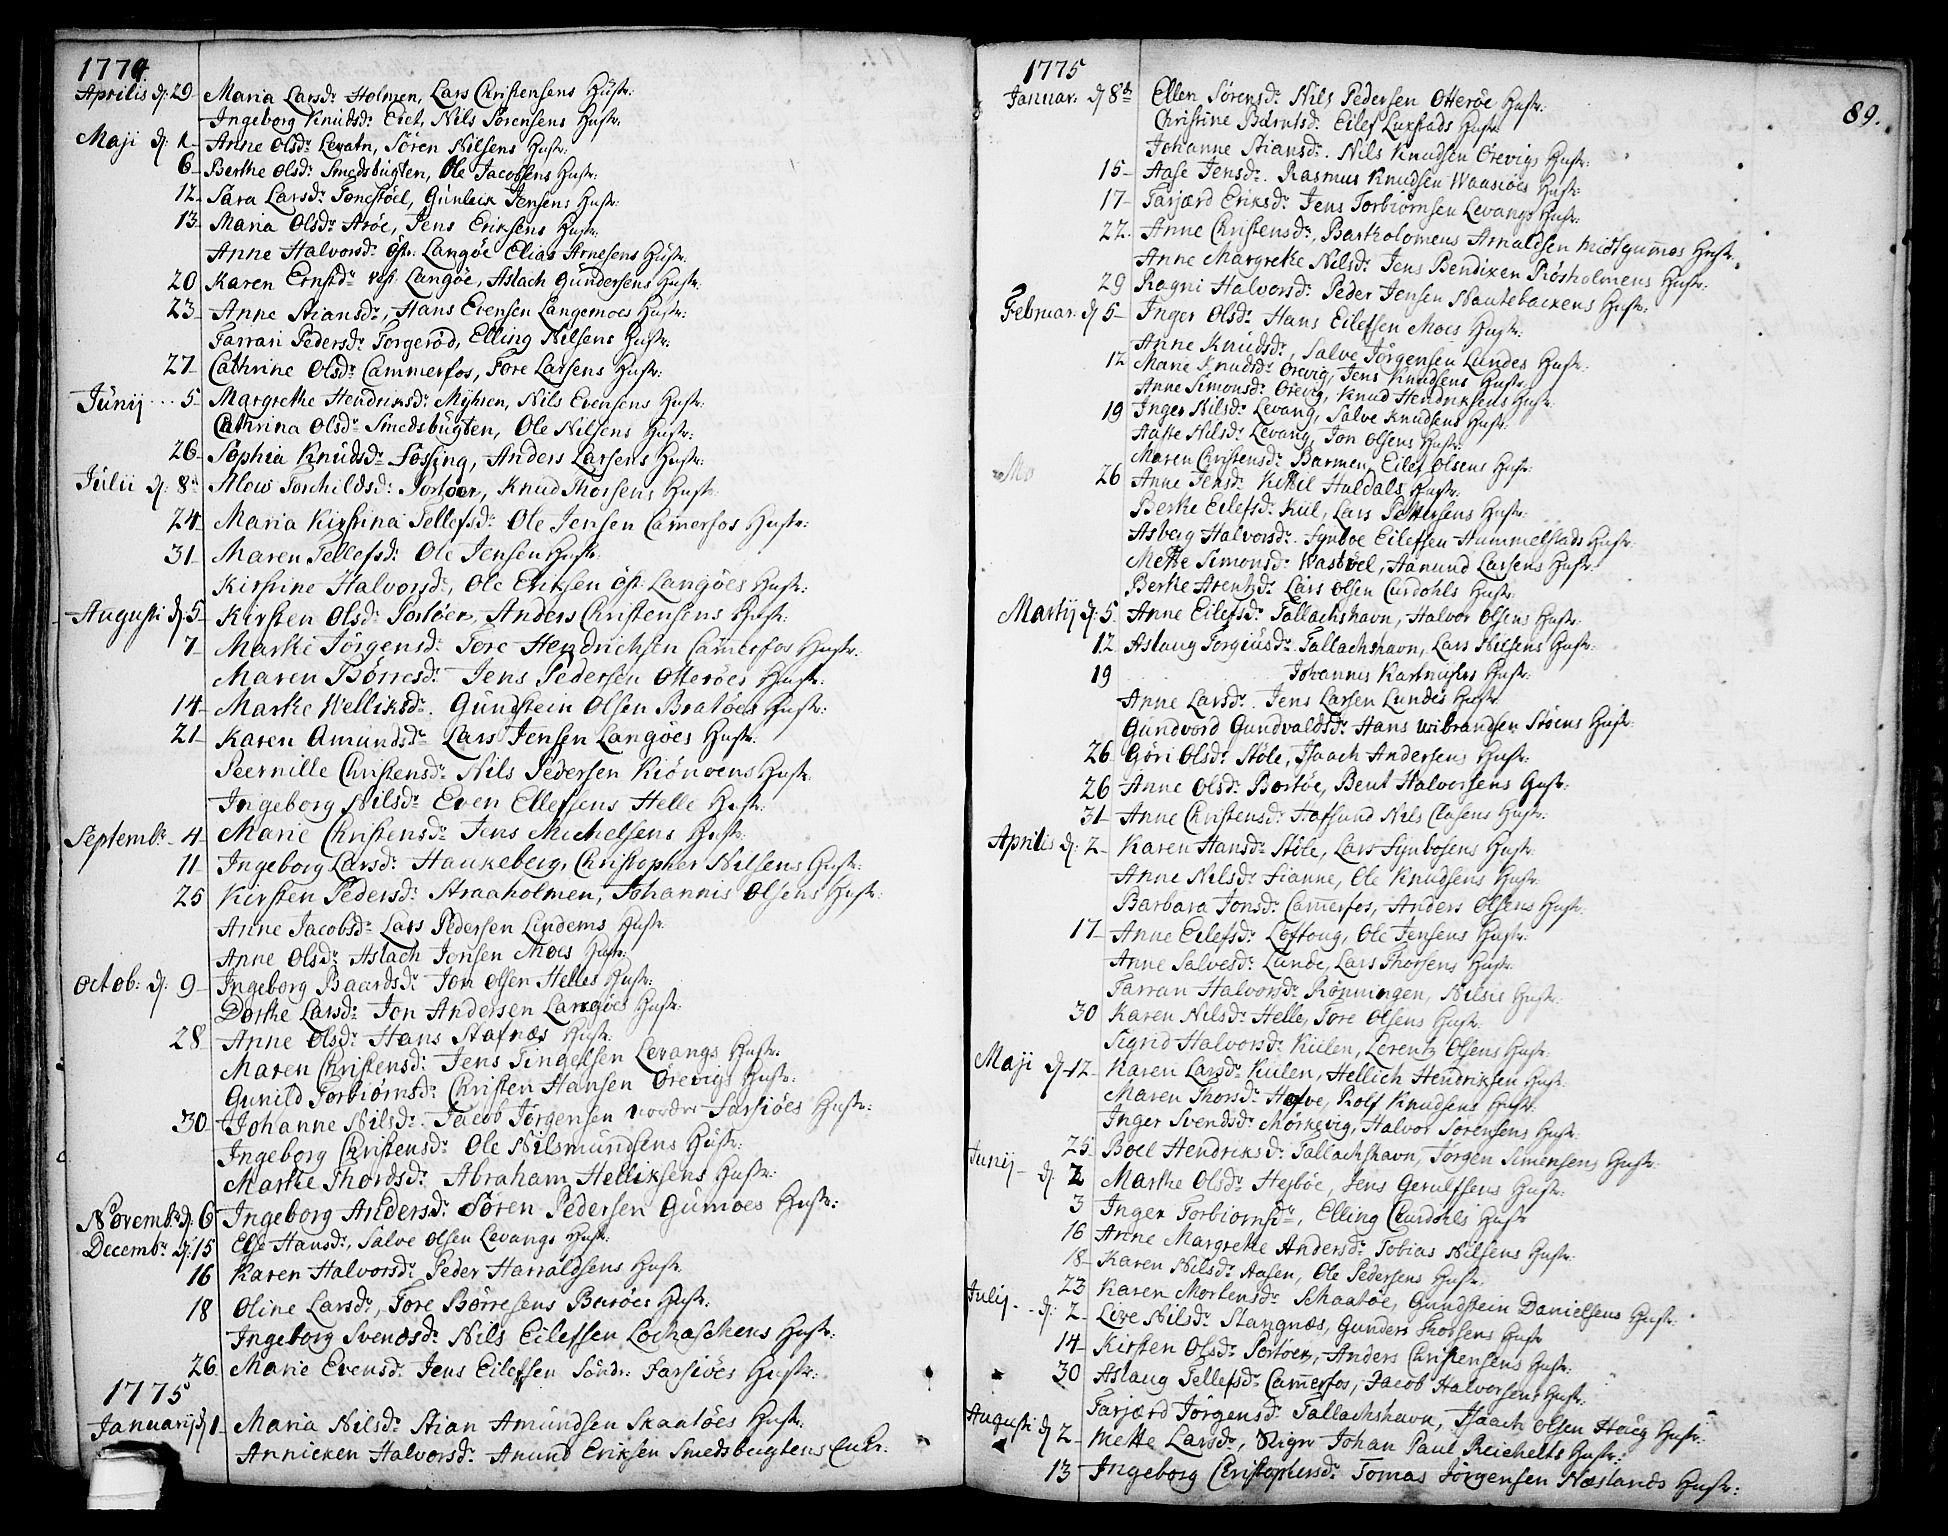 1774.
Aprilis d: 29 Maria Larsdr Holmen, Lars Christensens Hustr:
Ingeborg Knudsdr Eeet, Nils Sørensens Hustr:
Maji d: 1 Anne Olsdr Levatn, Sören Nilsens Hustr:
6 Berthe Olsdr Smedsbugten, Ole Jacobsens Hustr:
12 Sara Larsdr Tonestöel, Gunleik Jensens Hustr:
13 Maria Olsdr Aröe, Jens Eriksens Hustr:
Anne Halvorsdr Öst: Langöe Elias Arnesens Hustr:
20 Karen Ernstdr vest. Langöe, Aslach Gundersens Hustr:
23 Anne Stiansdr, Hans Evensen Langemoes Hustr:
Tarran Pedersdr Torgeröd, Elling Nilsens Hustr:
27 Cathrine Olsdr Cammerfos, Tore Larsens Hustr:
Junij 5 Margrethe Hendriksdr Myhren, Nils Evensens Hustr:
Cathrina Olsdr Smedsbugten, Ole Nilsens Hustr:
26 Sophia Knudsdr Fossing, Anders Larsens Hustr:
Julii d: 8 Alow Torchildsdr Portöer, Knud Thorsens Hustr:
24 Maria Kirstina Tellefsdr Ole Jensen Camerfos Hustr:
31 Maren Tellefsdr Ole Jensen Hustr:
Kirstine Halvorsdr, Ole Eriksen Öst Langöes Hustr:
Augusti d. 5 Kirsten Olsdr Portöer, Anders Christensens Hustr:
7 Marthe Jörgensdr Tore Hendrichsen Camerfos Hustr:
Maren Börresdr Jens Pedersen Otteröes Hustr:
14 Marthe Welliksdr. Gundstein Olsen Bratöes Hustr:
21 Karen Amundsdr Lars Jensen Langöes Hustr.
Peernille Christensdr Nils Pedersen Kiönoens Hustr.
Ingeborg Nilsdr Even Ellefsens Helle Hustr:
Septembr. 4 Marie Christensdr Jens Michelsens Hustr.
11 Ingeborg Larsdr Haukeberg, Christopher Nilsens Hustr:
25 Kirsten Pedersdr Straaholmen, Johannis Olsens Hustr:
Anne Jacobsdr Lars Pedersen Lindems Hustr.
Anne Olsdr Aslach Jonsen Moes Hustr.
Octob: d: 9 Ingeborg Baardsdr Jon Olsen Helles Hustr:
Dorthe Larsdr Jon Andersen Langöes Hustr:
28 Anne Olsdr Hans Stafnæs Hustr:
Maren Christensdr Jens Tingelsen Levangs Hustr:
Gunild Torbiörnsdr Christen Hansen Örevigs Hustr:
30 Johanne Nilsdr. Jacob Jörgensen nordre Farsiöes Hustr:
Ingeborg Christensdr Ole Nilsmundsens Hustr.
Marthe Thordsdr: Abraham Helliksens Hustr:
Novembr d. 6 Ingeborg Andersdr Sören Pedersen Gumöes Hustr:
Decembr. d: 15 Else Hansdr, Salve Olsen Levangs Hustr:
16 Karen Halvorsdr Peder Harraldsens Hustr.
18 Oline Larsdr, Tore Börresens Baröes Hustr:
Ingeborg Svendsdr Nils Eilefsen Hustr:
26 Marie Evensdr Jens Eilefsen Söndr: Farsiöes Hustr:
1775
Januarij d 1 Maria Nilsdr Stian Amundsen Skaatöes Hustr:
Annicken Halvorsdr Anund Eriksen Smedsbugtens
1775
89.
Januar: d 8de Ellen Sörensdr Nils Pedersen Otteröe Hustr:
Christine Berntsd. Eilef Luxstads Hustr
Johanne Stiansdr. Nils Knudsen Örevigs Hustr:
15 Aase Jensdr. Rasmus Knudsen Waasiöes Hustr:
17 Tarjærd Eriksdr Jens Torbiörnsen Levangs Hustr:
22 Anne Christensdr, Bartholomeus Arnaldsen midtgumöes Hustr.
Anne Margrethe Nilsdr Jens Bendixen Rösholmens Hustr:
29 Ragni Halvorsdr Peder Jensen Nautebackens Hustr:
Februar. d 5 Inger Olsdr Hans Eilefsen Moes Hustr:
Anne Knudsdr, Salve Jörgensen Lundes Hustr:
12 Marie Knudsdr Örevig, Jens Knudsens Hustr
Anne Simonsdr Örevig, Knud Hendriksens Hustr:
19 Inger Nilsdr Levang, Salve Knudsens Hustr:
Aaste Nilsdr Levang, Jon Olsens Hustr:
Maren Christensdr Barmen, Eilef Olsens Hustr
26 Anne Jensdr Kittil Haldals Hustr:
Berthe Eilefsdr Kiil, Lars Pettersens Hustr:
Asberg Halvorsdr. Syndve Eilefsen Hummelstads Hustr:
Mette Simonsdr Wastöel, Aanund Larsens Hustr:
Berthe Arentzdr Lars Olsen Curdohls Hustr:
Martij d: 5 Anne Eilefsdr Tallachshavn, Halvor Olsens Hustr:
12 Aslaug Torgiusdr Tallachshavn, Lars Nilsens Hustr:
19 Johannis Hustr:
Anne Larsdr. Jens Larsen Lundes Hustr
Gundvord Gundvaldsdr Hans Wibrandsen Stöens Hustr:
26 Göri Olsdr Stöle, Isaach Andersens Hustr:
26 Anne Olsdr Bertöe, Bent Halvorsens Hustr:
31 Anne Christensdr Hafsund Nils Clasens Hustr:
Aprilis d: 2 Karen Hansdr Stöle, Lars Synbosens Hustr.
Anne Nilsdr Fianne, Ole Knudsens Hustr:
Barbara Jonsdr Camerfos, Anders Olsens Hustr
17 Anne Eilefsdr Loftoug, Ole Jensens Hustr:
Anne Salvesdr Lunde, Lars Thorsens Hustr:
Tarran Halvorsdr Rönningen, Nilsis Hustr:
30 Karen Nilsdr Helle, Tore Olsens Hustr:
Sigrid Halvorsdr Kiilen, Lorentz Olsens Hustr:
Maji d 12 Karen Larsdr Kiilen, Hellich Hendriksen Hustr:
Maren Thorsdr Holve, Rolf Knudsens Hustr:
Inger Svendsdr Mörkevig, Halvor Sörensens Hustr:
25 Boel Hendriksdr Tallachshavn, Jörgen Simensens Hustr:
Junij d. 2 Marthe Olsdr Hesböe, Jens Gerulfsens Hustr:
3 Inger Torbiornsdr, Elling Curdohls Hustr
16 Anne Margrethe Andersdr Tobias Nilsens Hustr:
18 Karen Nilsdr Aasen, Ole Pedersens Hustr.
23 Karen Mortensdr Schaatöe, Gundstein Danielsens Hustr:
Julij d: 2 Live Nilsdr Stangnæs, Gunders Hustr
14 Kirsten Olsdr Portöer, Anders Christensens Hustr:
30 Aslaug Tellefsdr Camerfos, Jacob Halvorsens Hustr:
Tarjærd Jörgensdr Tallachshavn, Isaach Olsen Houg Hustr:
Augusti d 2 Mette Larsdr, Johan Paul Reichelts Hustr:
13 Ingeborg Christophersdr Tomas Jörgensen Næslands Hustr: